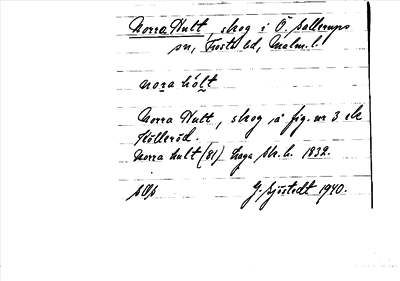 Norra Hult, skog i Ö. Sallerups
sn, Frosta hd, Malm. l.
nora hólt
Norra Hult, skog å fig. nr 3 ek
Hölleröd.
Norra hult (81) Laga Sk. h. 1832.
G. Sjöstedt 1940.